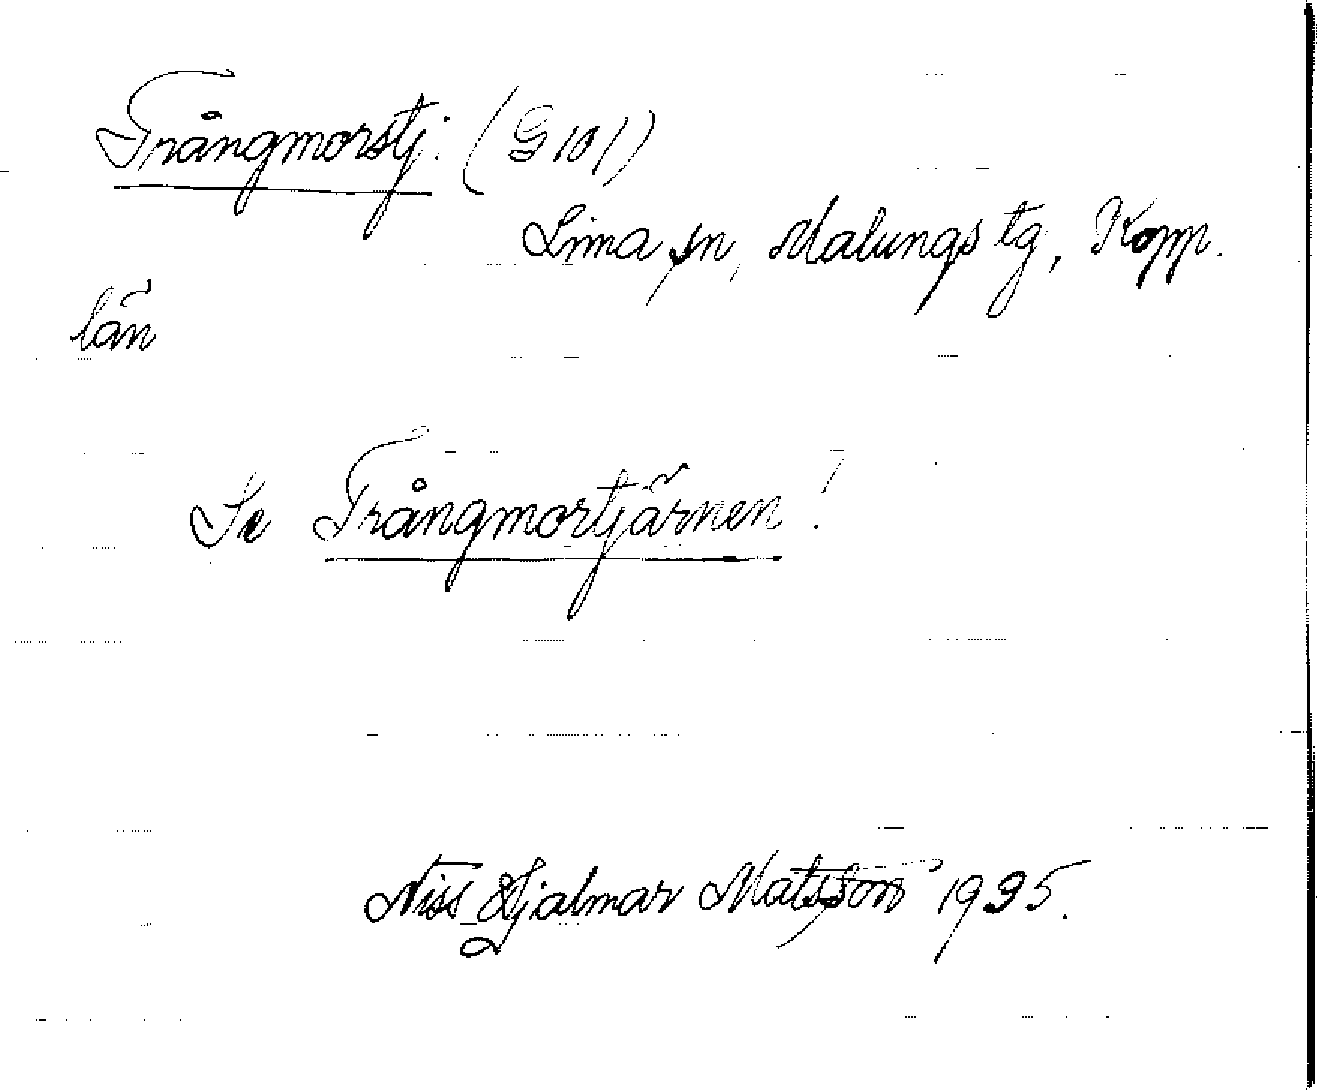 Trångmorstj. (G 101)
Lima sn, Malungs tg, Kopp.
län
Se Trångmortjärnen!
Niss Hjalmar Matsson 1935.